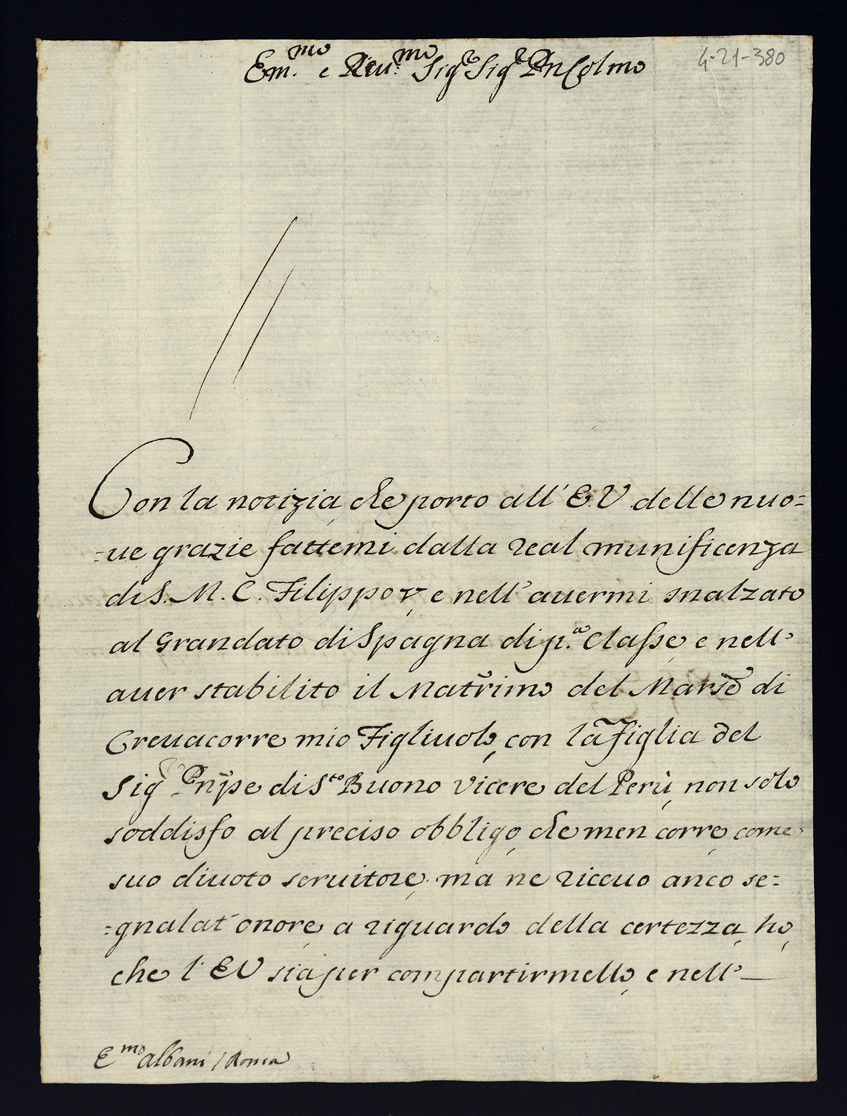 Em.mo e Reu.mo Sig.r Sig.r Pñ Colmo
4-21-380
Con la notizia che porto all' E.V. delle nuo=
=ue grazie fattemi dalla real munificenza
di S. M. C. Filippo V, e nell' auermi inalzato
al Grandato di Spagna di p.a Classe, e nell'
auer stabilito il Matrim̃o del Marsẽ di
Creuacorre mio Figliuolo, con la figlia del
Sig.r Pñpe di S.to Buono vicere del Perù, non solo
soddisfo al preciso obbligo, che men corre, come
suo diuoto seruitore, mà ne riceuo anco se=
=gnalat' onore, a riguardo della certezza, hò,
che l' EV sia per compartirmelo, e nell'
E.mo Albani / Roma